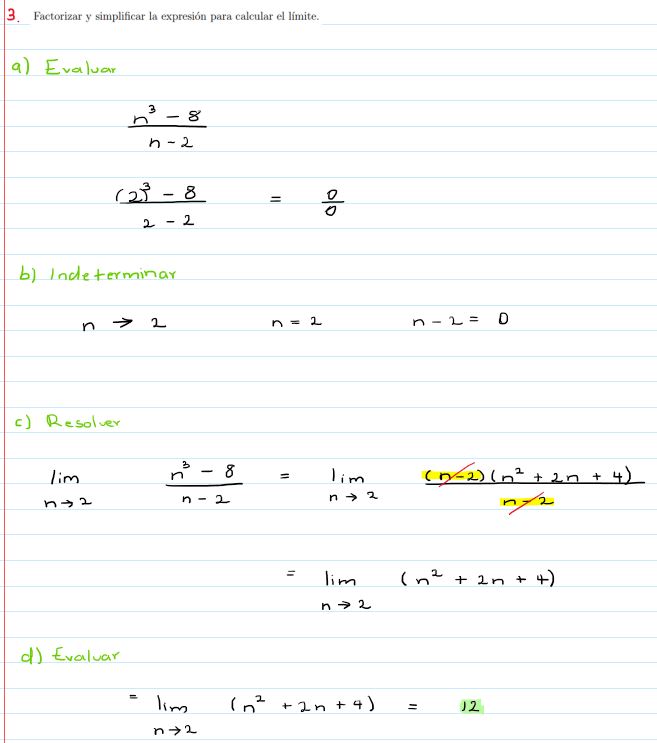 3. Factorizar y simplificar la expresión para calcular el límite.
a) Evaluar
n³ - 8
n - 2
(2)³ - 8 = 0
2 - 2 0
b) Indeterminar
n → 2 n = 2 n - 2 = 0
c) Resolver
lim n³ - 8 = lim (n-2)(n² + 2n + 4)
n → 2 n - 2 n → 2 n - 2
= lim (n² + 2n + 4)
n → 2
d) Evaluar
= lim (n² + 2n + 4) = 12
n → 2